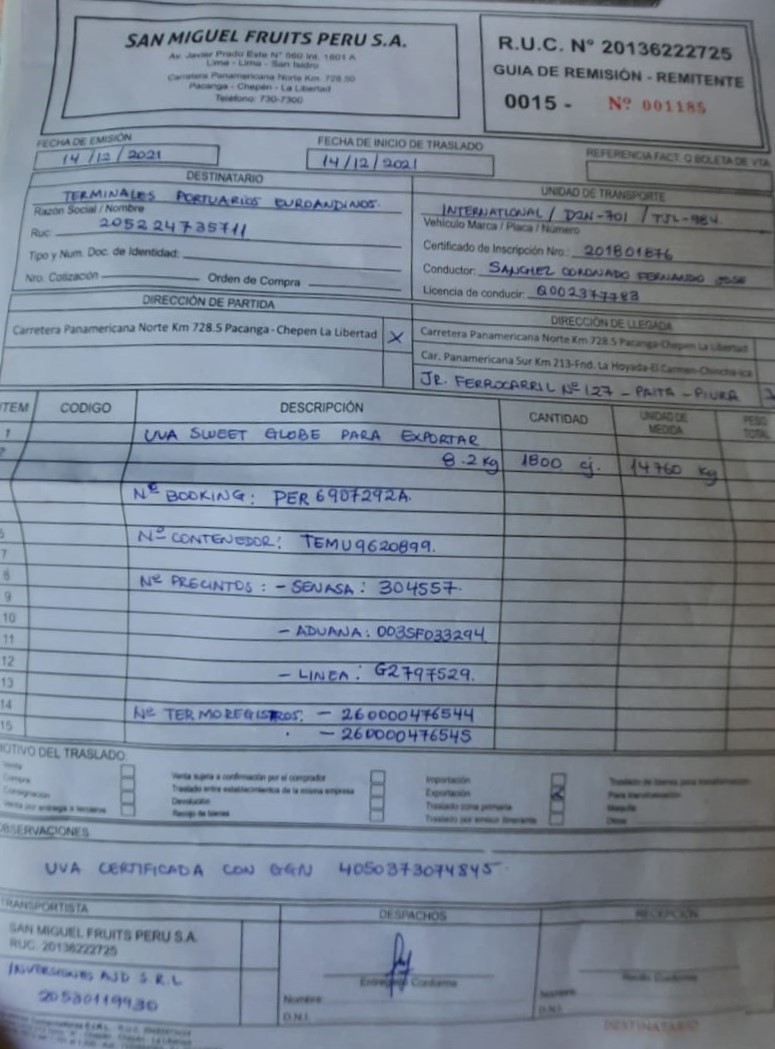 SAN MIGUEL FRUITS PERU S.A.
Av. Javier Prado Este N° 560 Int. 1801 A
Lima - Lima - San Isidro
Carretera Panamericana Norte Km. 728.50
Pacanga - Chepén - La Libertad
Teléfono: 730-7300
R.U.C. N° 20136222725
GUIA DE REMISIÓN - REMITENTE
0015 - Nº 001185
FECHA DE EMISIÓN
14/12/2021
FECHA DE INICIO DE TRASLADO
14/12/2021
REFERENCIA FACT. O BOLETA DE VTA
DESTINATARIO
TERMINALES PORTUARIOS EUROANDINOS.
Razón Social / Nombre
Ruc: 205224735711
Tipo y Num. Doc. de Identidad:
Nro. Cotización Orden de Compra
UNIDAD DE TRANSPORTE
INTERNATIONAL / D2N-701 / TJL-984.
Vehículo Marca / Placa / Número
Certificado de Inscripción Nro.: 201801876
Conductor: SANCHEZ CORONADO FERNANDO JOSE
Licencia de conducir: Q002377783
DIRECCIÓN DE PARTIDA
Carretera Panamericana Norte Km 728.5 Pacanga - Chepen La Libertad X
DIRECCIÓN DE LLEGADA
Carretera Panamericana Norte Km 728.5 Pacanga-Chepen La Libertad
Car. Panamericana Sur Km 213-Fnd. La Hoyada-El Carmen-Chincha-Ica
JR. FERROCARRIL Nº 127 - PAITA - PIURA
ITEM CODIGO DESCRIPCIÓN CANTIDAD UNIDAD DE MEDIDA PESO TOTAL
1 UVA SWEET GLOBE PARA EXPORTAR
2 8.2 kg 1800 cj. 14760 kg
Nº BOOKING: PER6907292A.
Nº CONTENEDOR: TEMU9620899.
7
8 Nº PRECINTOS: - SENASA: 304557.
9
10
11 - ADUANA: 003SF033294
12
13 - LINEA: G2797529.
14 Nº TERMOREGISTROS: - 260000476544
15 - 260000476545
MOTIVO DEL TRASLADO:
Venta
Compra
Consignación
Venta por entrega a terceros
Venta sujeta a confirmación por el comprador
Traslado entre establecimientos de la misma empresa
Devolución
Recojo de bienes
Importación
Exportación
Traslado zona primaria
Traslado por emisor itinerante
Traslado de bienes para transformación
Para transformación
Otros
OBSERVACIONES
UVA CERTIFICADA CON GGN 4050373074845.
TRANSPORTISTA
SAN MIGUEL FRUITS PERU S.A.
RUC. 20136222725
INVERSIONES AJD S.R.L
20530119930
DESPACHOS
Entregado Conforme
Nombre
D.N.I.
RECEPCIÓN
Recibí Conforme
Nombre
D.N.I.
DESTINATARIO